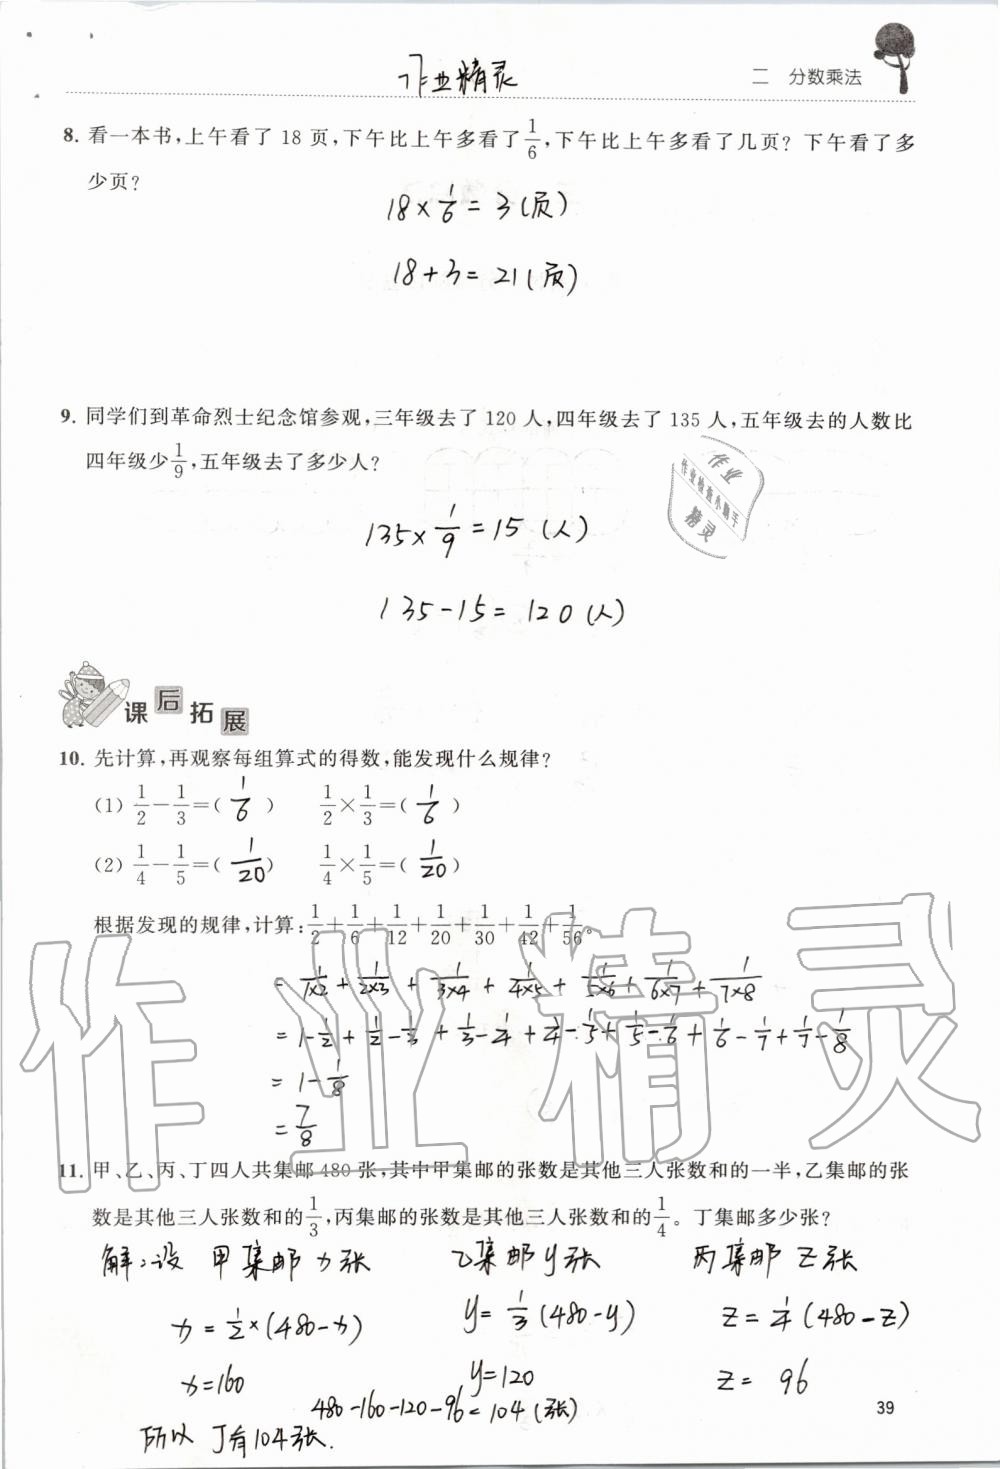 作业精灵
二 分数乘法
8. 看一本书,上午看了 18 页,下午比上午多看了1/6,下午比上午多看了几页? 下午看了多
少页?
18×1/6=3(页)
18+3=21(页)
9. 同学们到革命烈士纪念馆参观,三年级去了 120 人,四年级去了 135 人,五年级去的人数比
四年级少1/9,五年级去了多少人?
作业
作业检查小助手
精灵
135×1/9=15(人)
135-15=120(人)
课后拓展
10. 先计算,再观察每组算式的得数,能发现什么规律?
(1) 1/2-1/3=( 1/6 ) 1/2×1/3=( 1/6 )
(2) 1/4-1/5=( 1/20 ) 1/4×1/5=( 1/20 )
根据发现的规律,计算:1/2+1/6+1/12+1/20+1/30+1/42+1/56。
=1/1×2+1/2×3+1/3×4+1/4×5+1/5×6+1/6×7+1/7×8
=1-1/2+1/2-1/3+1/3-1/4+1/4-1/5+1/5-1/6+1/6-1/7+1/7-1/8
=1-1/8
=7/8
作业精灵
11. 甲、乙、丙、丁四人共集邮 480 张,其中甲集邮的张数是其他三人张数和的一半,乙集邮的张
数是其他三人张数和的1/3,丙集邮的张数是其他三人张数和的1/4。丁集邮多少张?
解:设 甲集邮x张 乙集邮y张 丙集邮z张
x=1/2×(480-x) y=1/3(480-y) z=1/4(480-z)
x=160 y=120 z=96
480-160-120-96=104(张)
所以丁有104张.
39